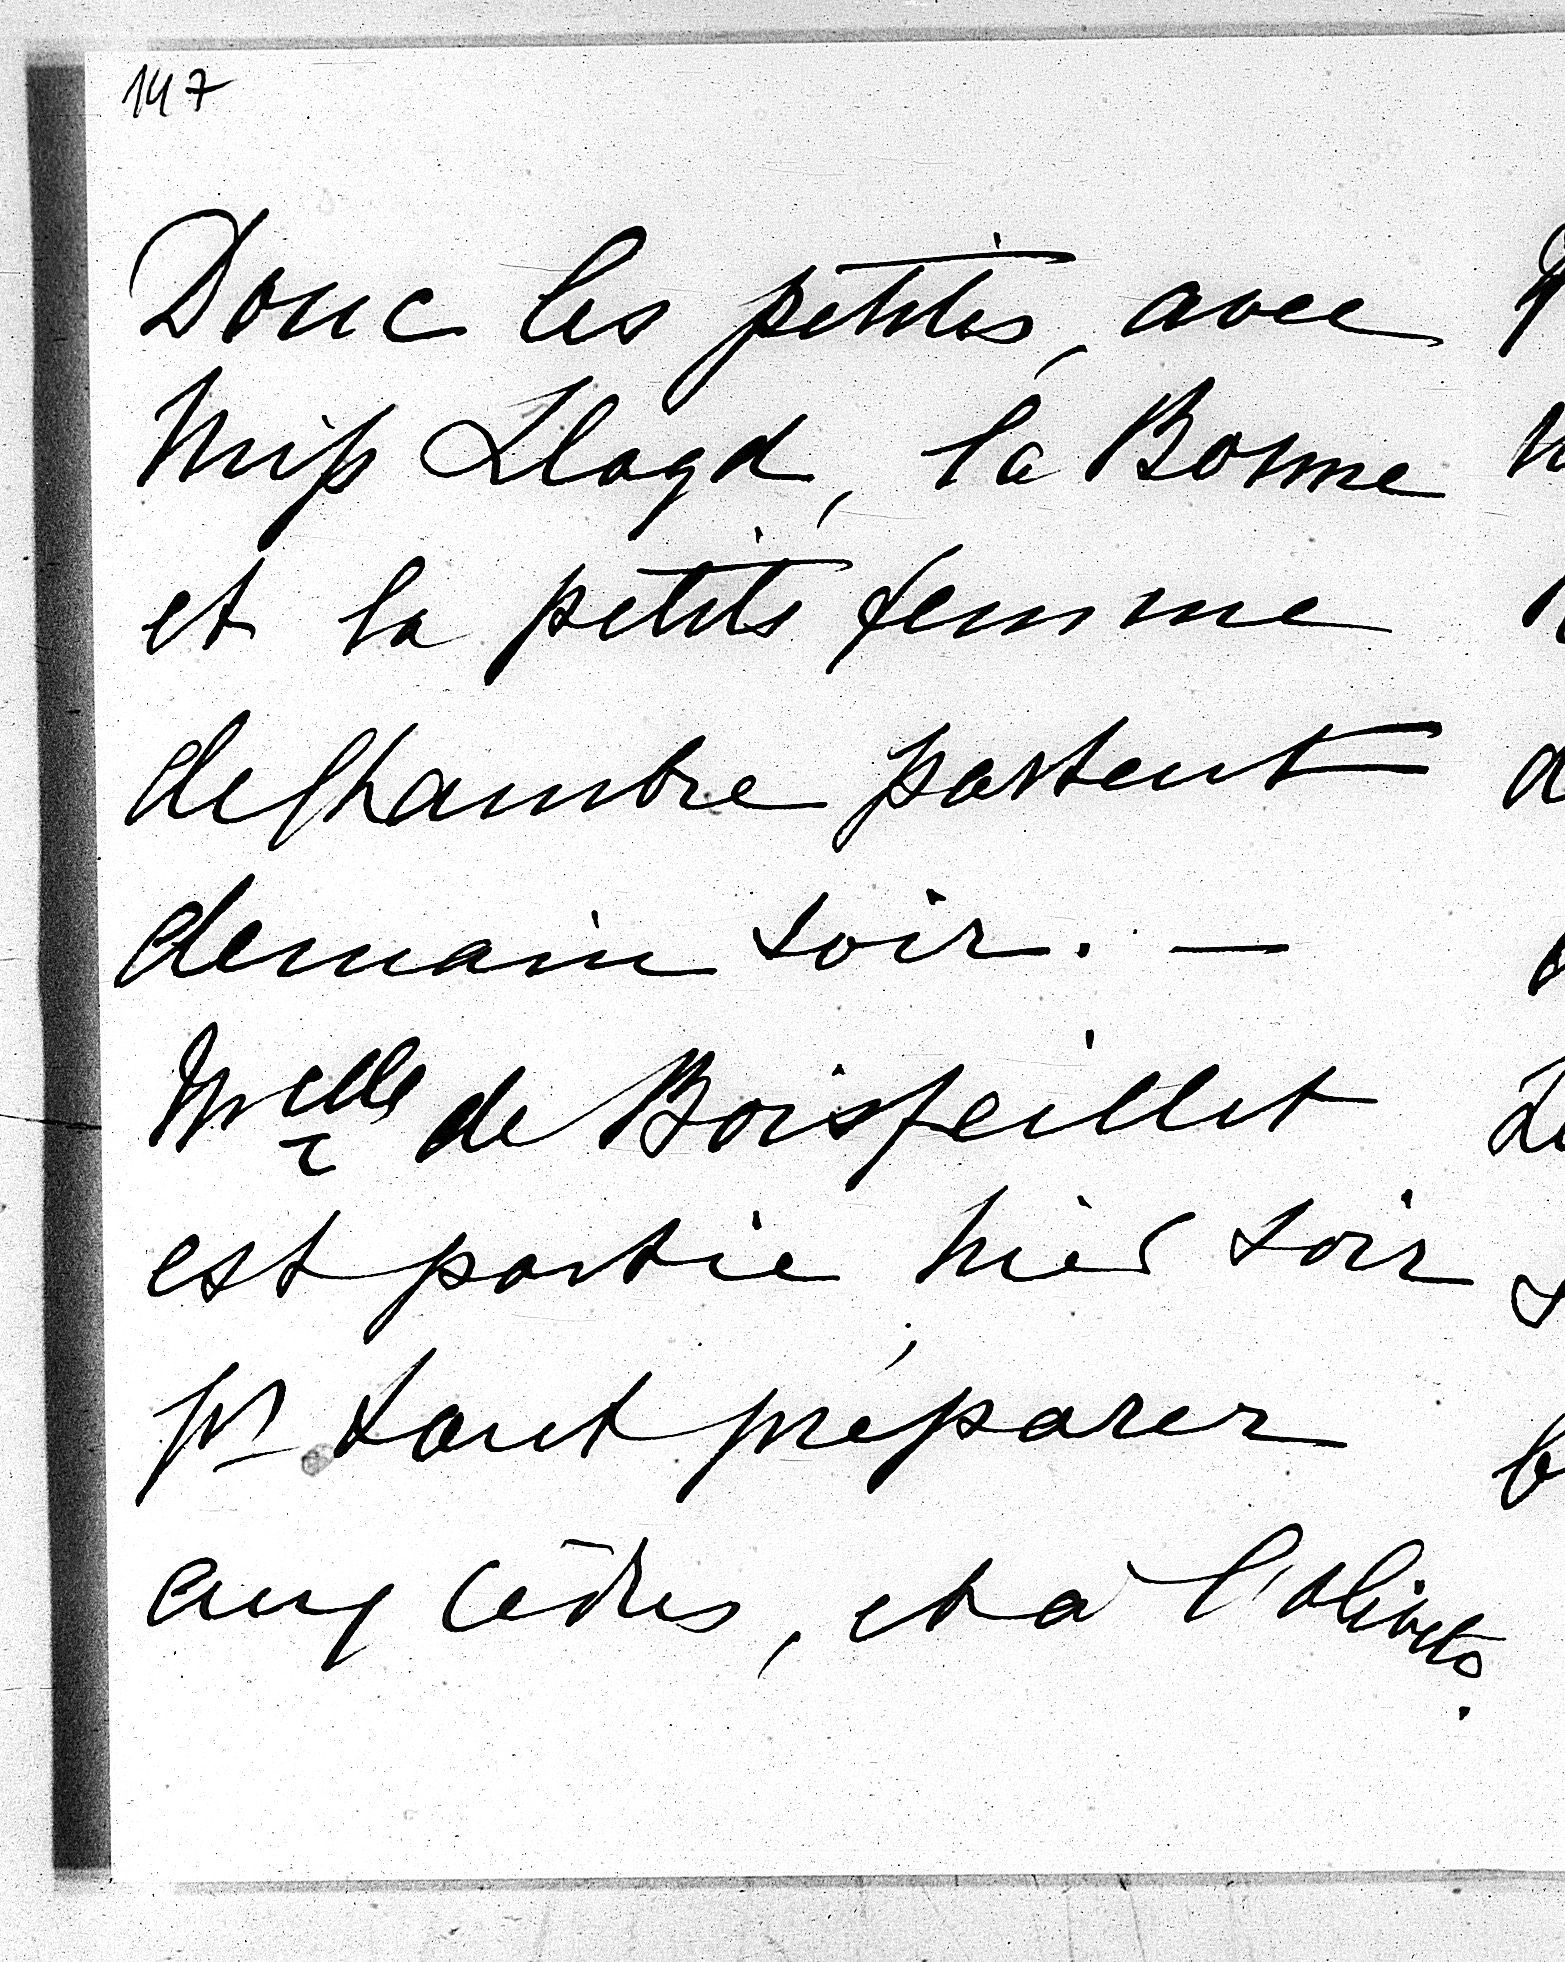 147
Donc les petites, avec
Miss Lloyd, la Bonne
et la petite femme
de chambre partent
demain soir. —
Melle de Boisfeillet
est partie, hier soir
pr tout préparer
aux Cèdres, et à l'oliveto.